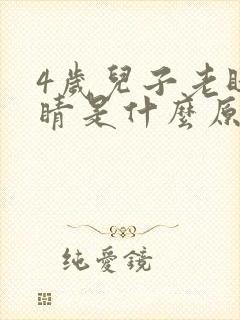 4歲兒子老
睛是什麼原
純愛鏡